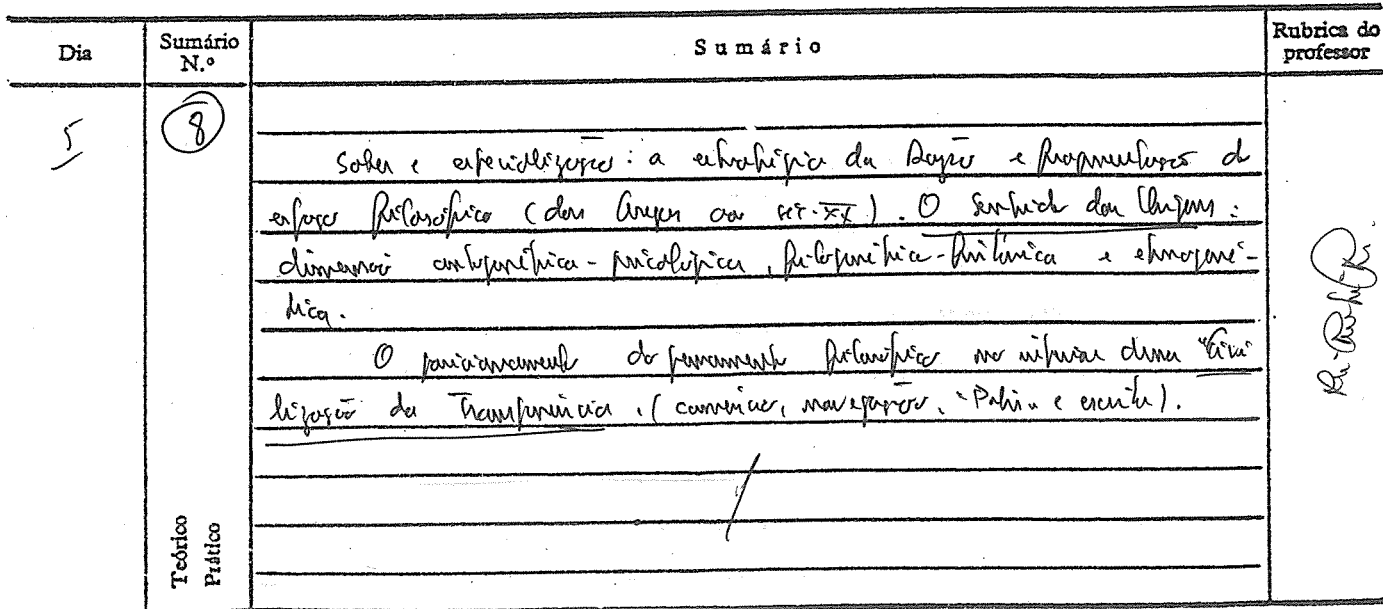 Dia
Sumário N.º
Sumário
Rubrica do professor
5
8
Saber e especialização: a estratégia da Razão e fragmentação do
esforço filosófico (dos Gregos ao séc. XX). O sentido das Origens:
dimensão ontogenética-psicológica, filogenética-histórica e etnogené-
tica.
O posicionamento do pensamento filosófico no interior duma "Civi
lização da Transparência" (comércio, navegação, "Polis" e escrita).
Teórico
Prático